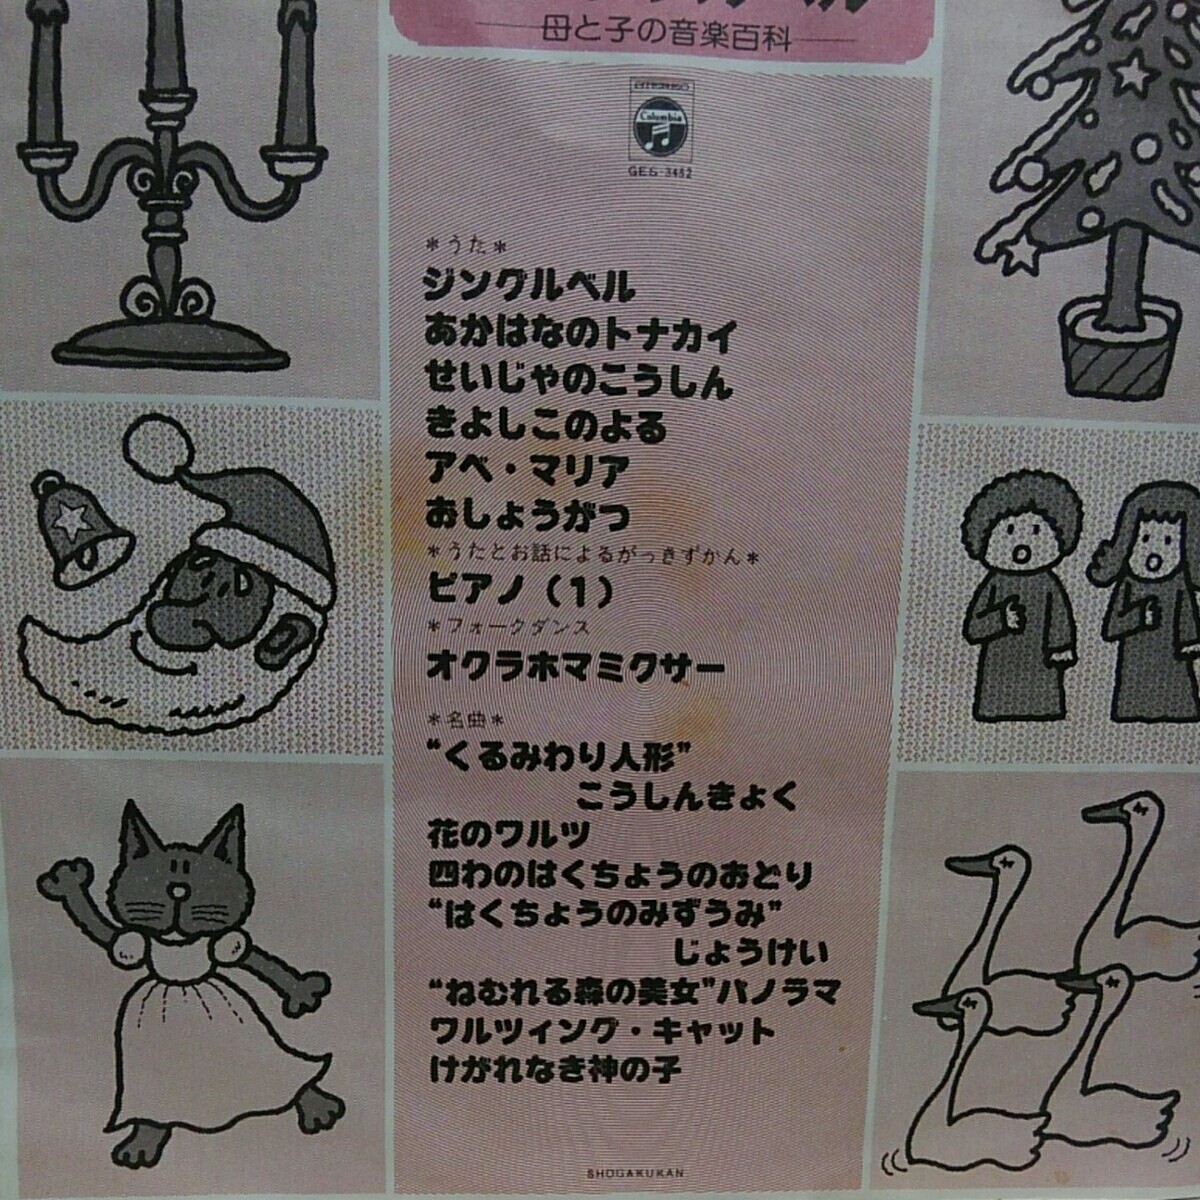 母と子の音楽百科
Columbia
GES-3482
*うた*
ジングルベル
あかはなのトナカイ
せいじゃのこうしん
きよしこのよる
アベ・マリア
おしょうがつ
*うたとお話によるがっきずかん*
ピアノ(1)
*フォークダンス
オクラホマミクサー
*名曲*
“くるみわり人形”
こうしんきょく
花のワルツ
四わのはくちょうのおどり
“はくちょうのみずうみ”
じょうけい
“ねむれる森の美女”パノラマ
ワルツィング・キャット
けがれなき神の子
SHOGAKUKAN